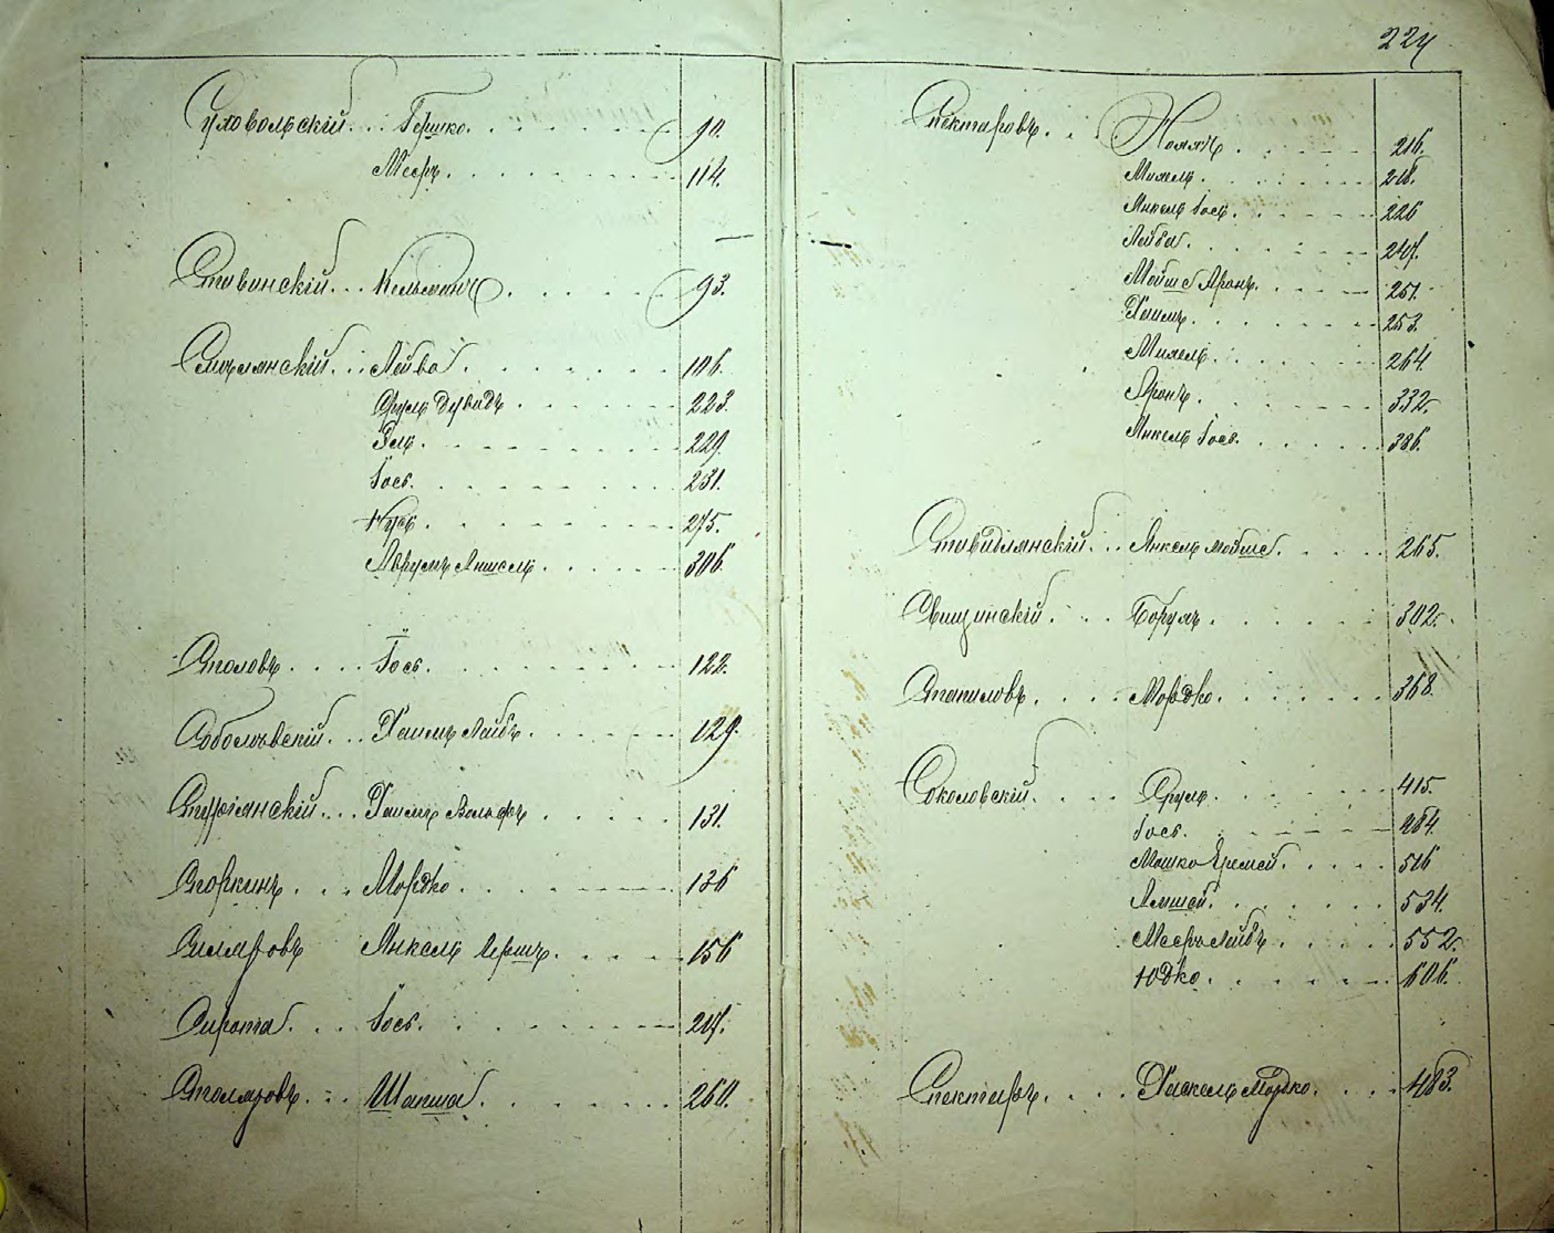 224
Суховольскій . . . Гершко . . . . . . . 90.
Мееръ . . . . . . . . . 114.
Ставинскій . . . Кельманъ . . . . . . 93.
Смѣлянскій . . . Лейба . . . . . . . 106.
Сруль Дувидъ . . . . . . 223.
Эль . . . . . . . . 229.
Іось . . . . . . . . 231.
Нусь . . . . . . . 275.
Аврумъ Аншель . . . . . . 306.
Споловъ . . . . Іось . . . . . . . . 122.
Соболѣвскій . . . Хаимъ Лейбъ . . . . . . 129.
Хаимъ Вольфъ . . . . . 131.
Сторкинъ . . . Мордко . . . . . . 136
Янкель Гершъ . . . . . 156
Сирота . . . Іось . . . . . . . 217.
Столяровъ . . . Шапша . . . . . . . 260.
Спектаровъ . . . . . . . . 216.
Михель . . . . . . . 218.
Янкель Іось . . . . . . 226
Лейба . . . . . . 247.
Мойше Аронъ . . . . . 251.
Хаимъ . . . . . . . 253.
Михель . . . . . . 264.
Аронъ . . . . . . . 332.
Янкель Іось . . . . . 386.
Ставидлянскій . . . Янкель Мойше . . . . 265.
Свищинскій . . . Борухъ . . . . . . 302.
Станиловъ . . . . Мордко . . . . . . 368.
Соколовскій . . . . Сруль . . . . . . 415.
Іось . . . . . . 484.
Мошко Еремей . . . . 516
. . . . . . 534.
Мееръ Лейбъ . . . . 552.
Юдко . . . . . . 606.
Спектаръ . . . . Хаскель Мордко . . . 483.